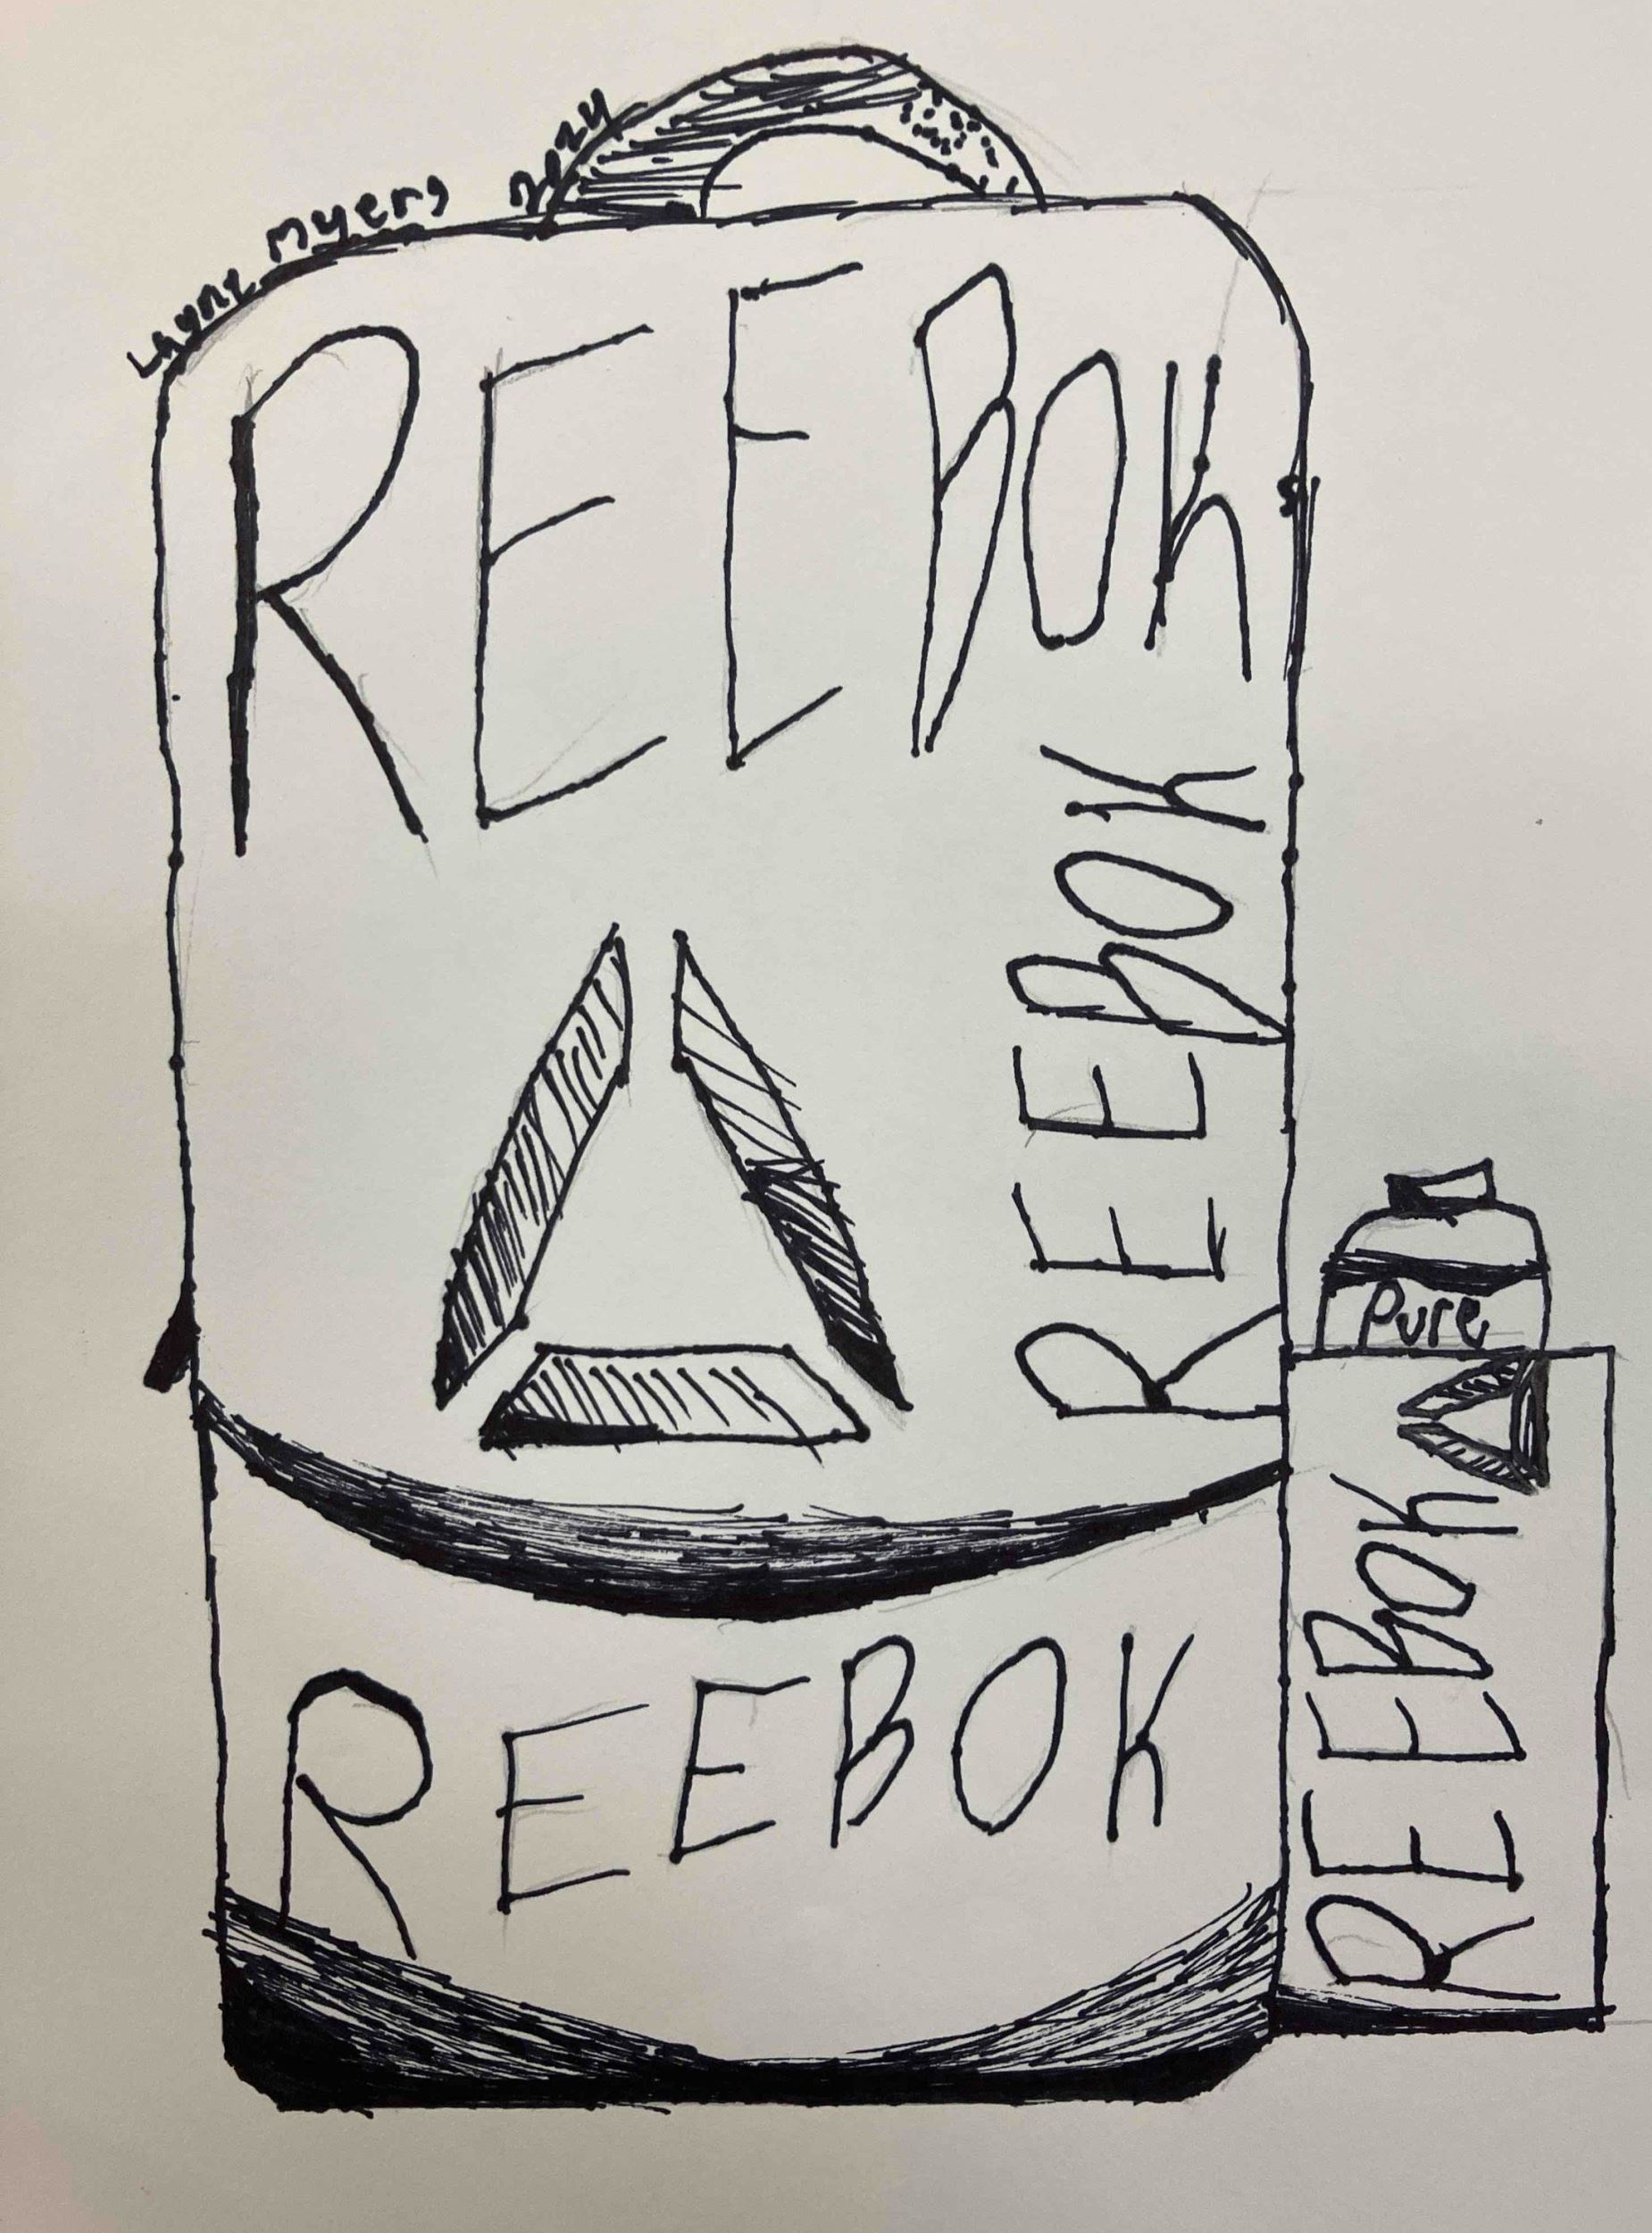 Layne Myers 2024
REEBOK
REEBOK
Pure
REEBOK
REEBOK